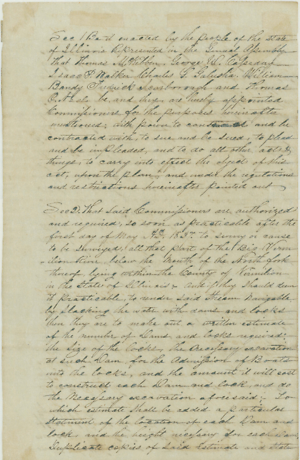 Sec 1 Be it enacted by the people of the State
of Illinois represented in the General Assembly
That Thomas
Isaac P. Walker Charles G. William
Bandy Frederick Scarborough and Thomas
be and they are hereby appointed
Commissioners for the purposes hereinafter
mentioned, with power to contract and be
contracted with, to sue and be sued, to plead
and be impleaded, and to do all other acts &
things, to carry into effect the objects of this
act, upon the plan, and under the regulations
and restrictions hereinafter pointed out
Sec 2. That said Commissioners are authorized
and required, so soon as practicable after the
first day of May AD. to survey or cause
to be surveyed all that part of the Big Verm-
illion River below the Mouth of the North fork
thereof lying within the County of Vermilion
in the State of Illinois & should they should deem
it practicable, to render said Stream navigable,
by slacking the water with dams and locks
then they are to make out a written estimate
of the number of Dams and locks required,
the size of the Locks, the necessary excavation
at such Dam for the admission of Boats
into the locks, and the amount it will cost
to construct each Dam and lock and do
the necessary excavation aforesaid. To
which estimate shall be added a particular
Statement of the location of each Dam and
lock and the height necessary for each Dam
Duplicate copies of said Estimate and state